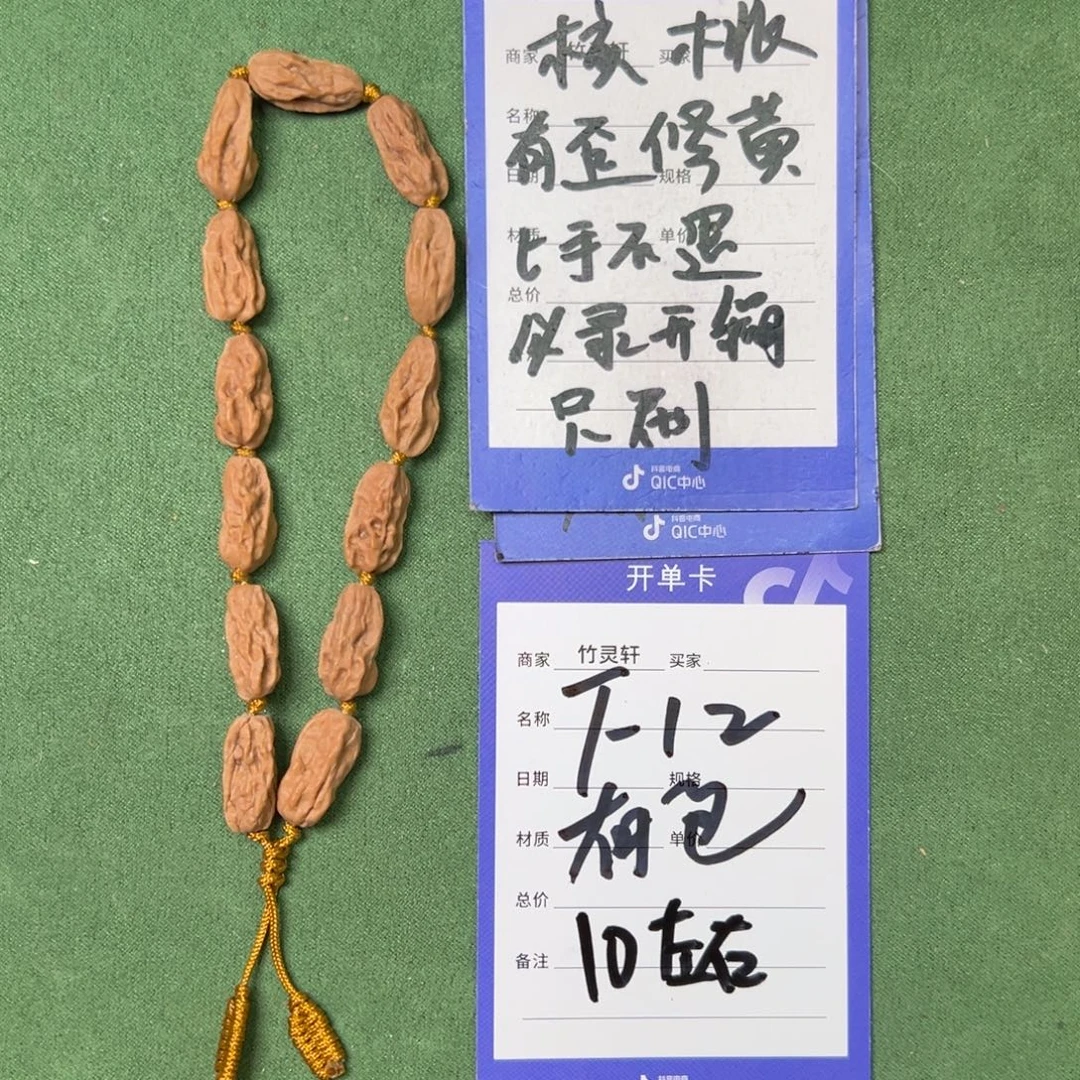 核桃
商家 竹灵轩 买家
名称
有歪修黄
日期 规格
材质 单价
上手不退
总价
必录开箱
只刷
抖音电商
QIC中心
抖音电商
QIC中心
开单卡
商家 竹灵轩 买家
名称 T-12
日期 规格
有包
材质 单价
总价
备注 10左右
抖音电商